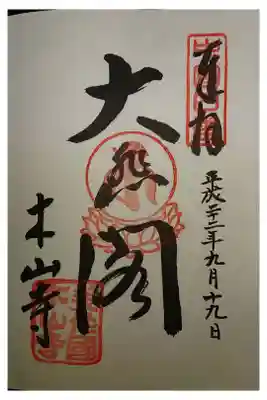 奉拝
平成二十二年九月十九日
大悲閣
木山寺